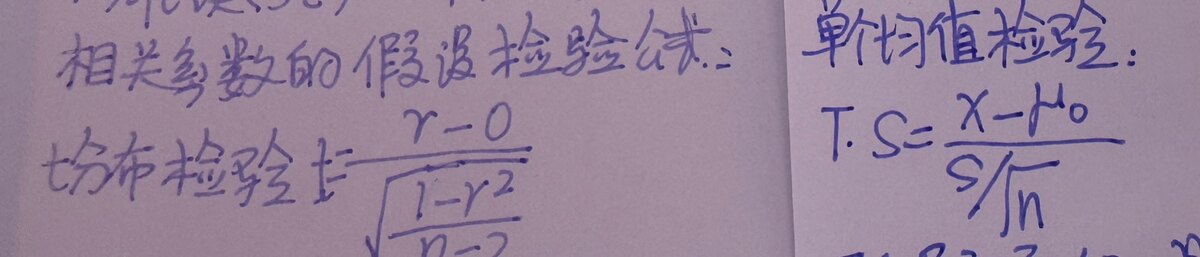 相关系数的假设检验公式:
t分布检验 t=\frac{r-0}{\sqrt{\frac{1-r^2}{n-2}}}
单个均值检验:
T.S=\frac{x-μ_0}{s/\sqrt{n}}